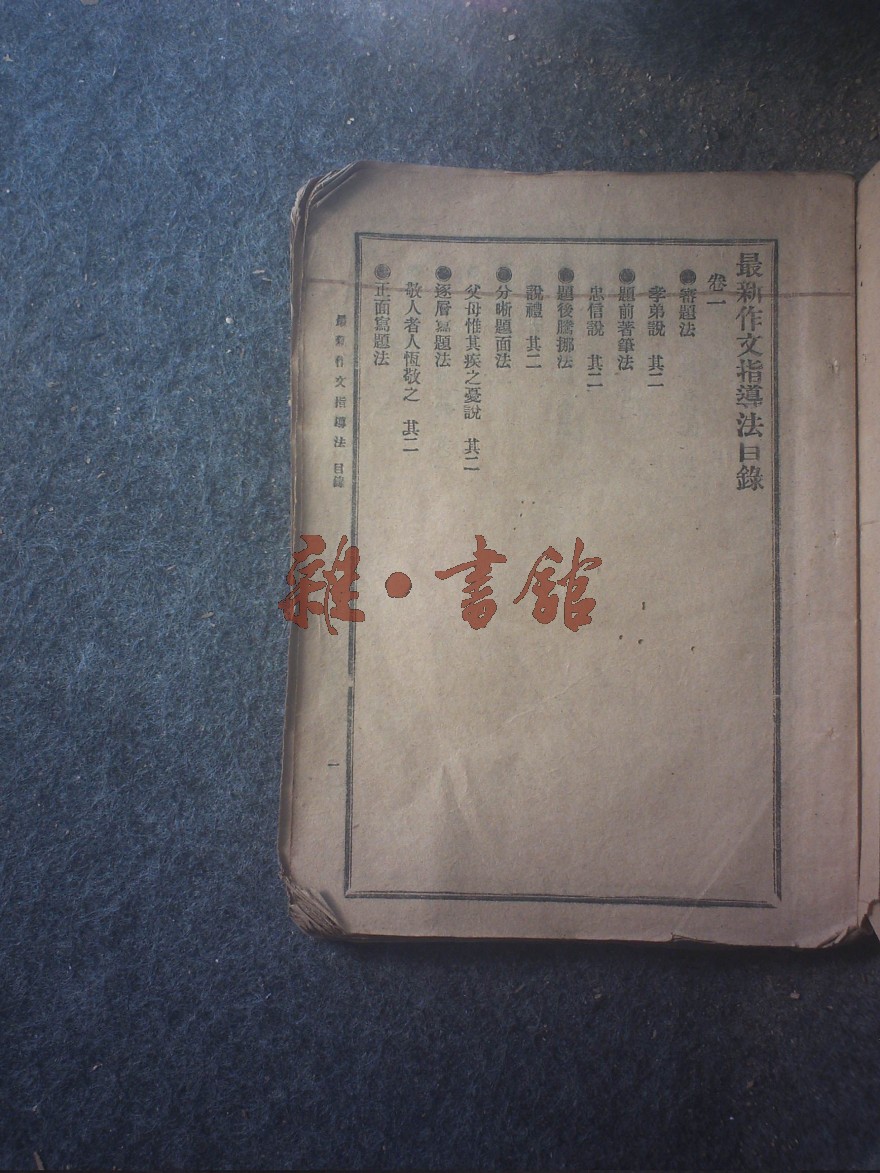 最新作文指導法目錄
卷一
●審題法
孝弟說　其二
●題前著筆法
忠信說　其二
●題後騰挪法
說禮　其二
●分晰題面法
父母惟其疾之憂說　其二
●逐層寫題法
敬人者人恆敬之　其二
●正面寫題法
最新作文指導法　目錄
一
雜·書館